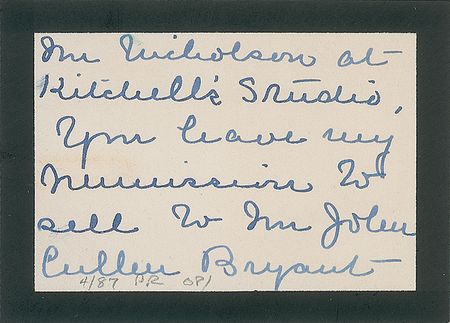 Mr Nicholson at
Kitchell's Studio,
You have my
permission to
sell to Mr John
Cullen Bryant
4/87 PR 081